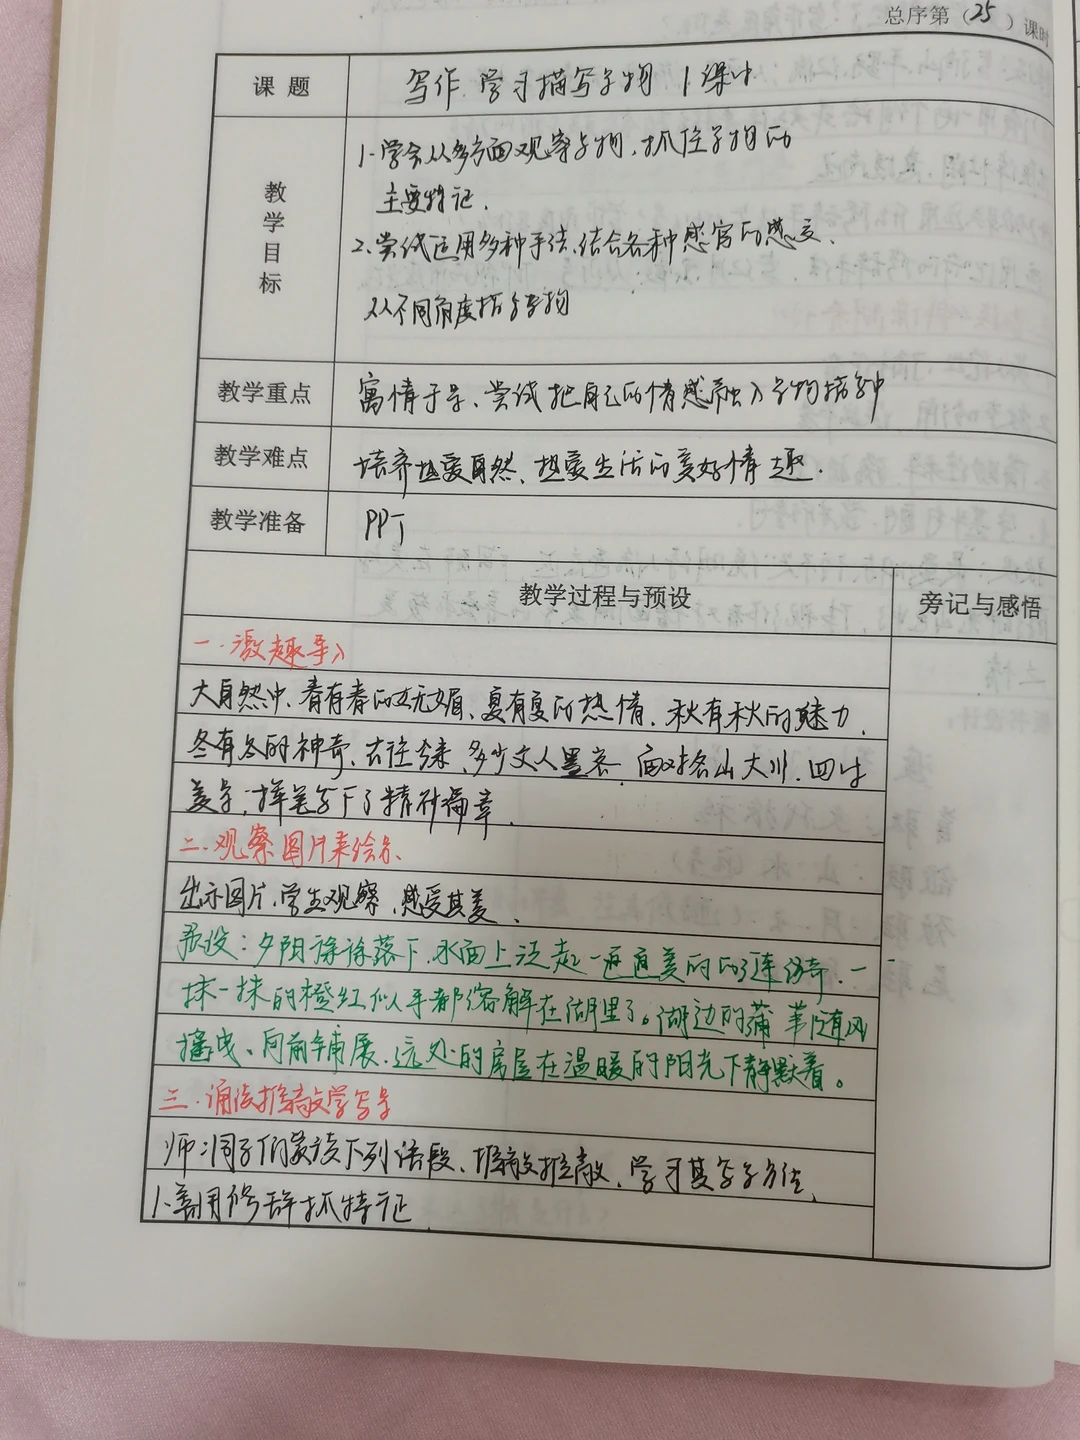 总序第（25）课时
课题
写作 学习描写景物 1课时
教学目标
1.学会从多方面观察景物，抓住景物的
主要特征.
2.尝试运用多种手法,结合各种感官的感受、
从不同角度描写景物
教学重点
寓情于景、尝试把自己的情感融入景物描写中
教学难点
培养热爱自然、热爱生活的美好情趣.
教学准备
PPT
教学过程与预设
旁记与感悟
一.激趣导入
大自然中、春有春的妩媚、夏有夏的热情，秋有秋的魅力，
冬有冬的神奇、古往今来、多少文人墨客，面对名山大川，四时
美景，挥笔写下了精彩篇章.
二.观察图片来绘景
出示图片,学生观察,感受其美.
预设：夕阳徐徐落下,水面上泛起一道道美丽的涟漪,一
抹一抹的橙红似乎都溶解在湖里了。湖边的蒲苇随风
摇曳、向前铺展.远处的房屋在温暖的阳光下静默着。
三.诵读推敲学写景
师:同学们蒙读下列语段、推敲推敲,学习其写景方法.
1.善用修辞抓特征.